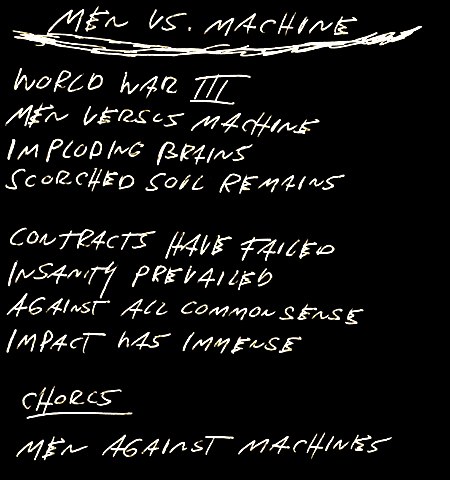 MEN VS. MACHINE
WORLD WAR III
MEN VERSUS MACHINE
IMPLODING BRAINS
SCORCHED SOIL REMAINS
CONTRACTS HAVE FAILED
INSANITY PREVAILED
AGAINST ALL COMMON SENSE
IMPACT WAS IMMENSE
CHORUS
MEN AGAINST MACHINES